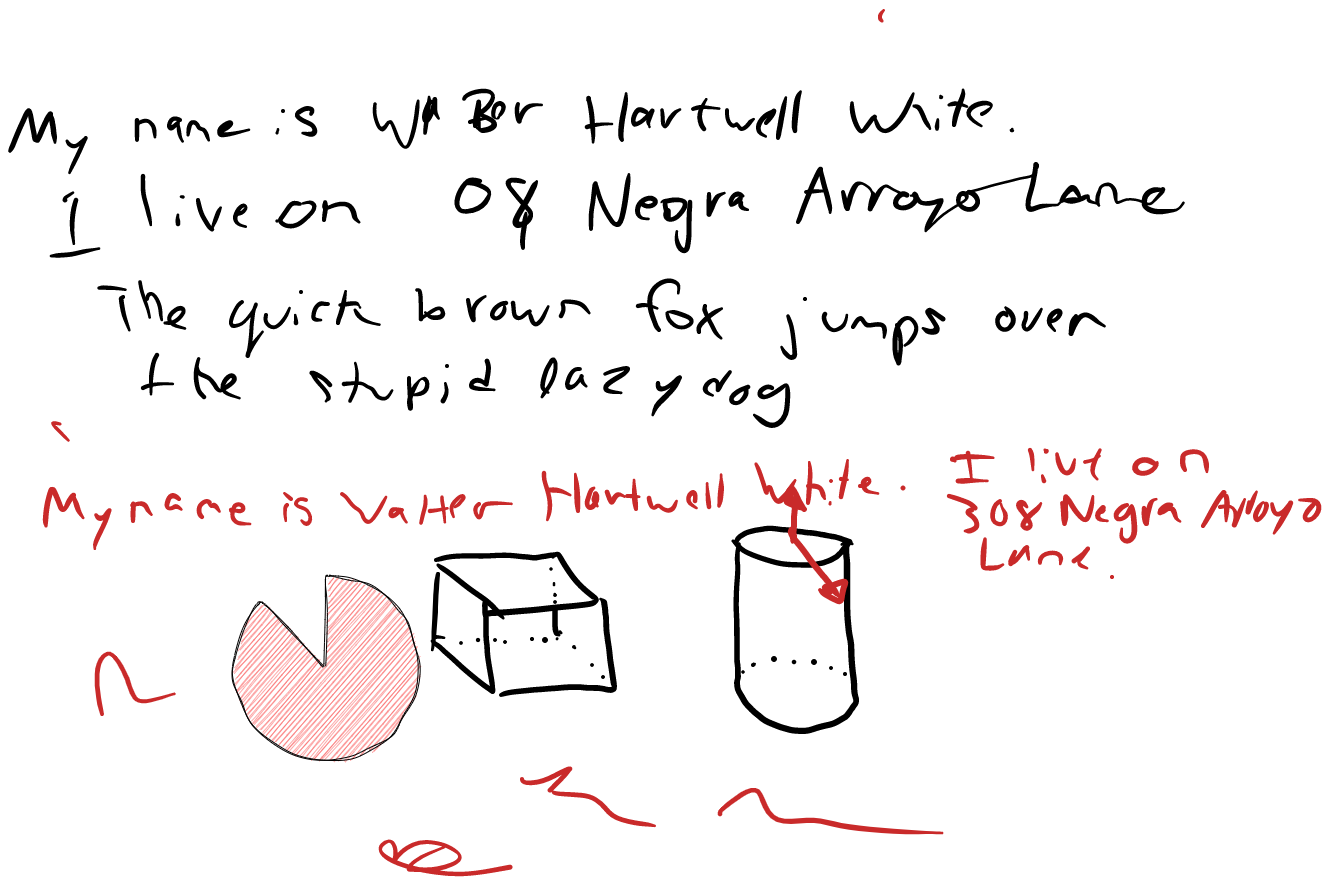 My name is Hartwell White.
I live on 08 Negra Arroyo Lane
The quick brown fox jumps over
the stupid lazy dog
My name is Valter Hartwell White. I live on
308 Negra Arroyo
Lane.